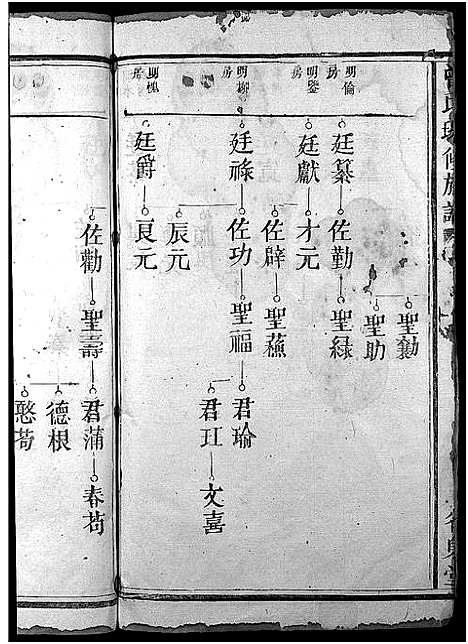 聖勷
聖助
明倫房
廷纂 佐勤 聖緑
佐辟 聖蘓
明鑒房
廷獻 才元
明柳房
廷祿 佐功 聖福 君瑜
君玒 文喜
辰元
明楓房
廷爵 良元
佐勸 聖壽 君蒲 春茍
德根
憨茍